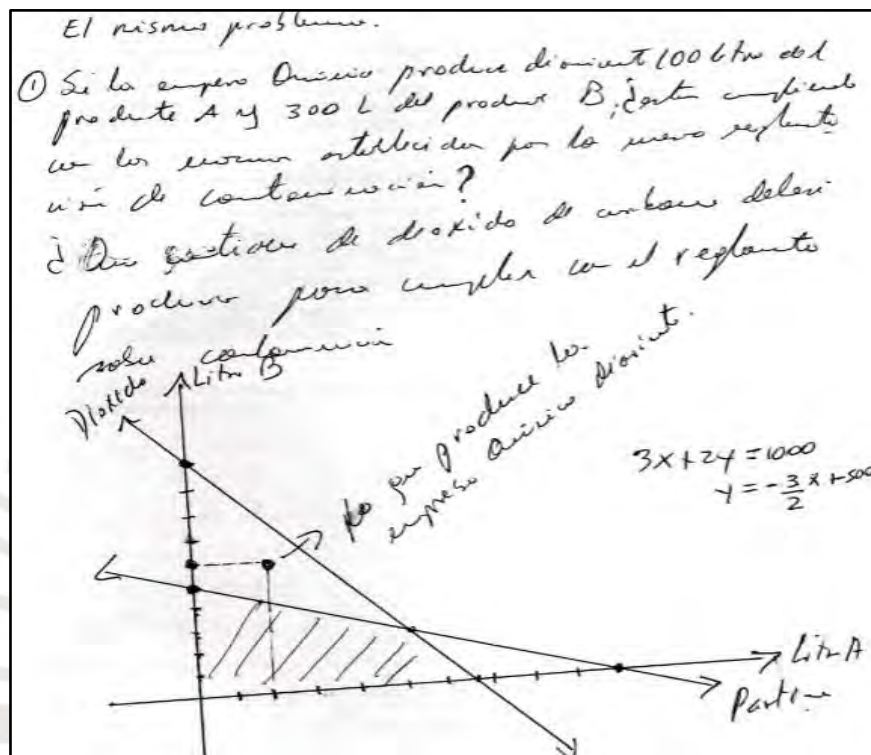 El mismo problema.
① Si la empresa Química produce diariamente 100 litros del
producto A y 300 L del producto B, ¿están cumpliendo
con las normas establecidas por la nueva reglamenta
ción de contaminación?
¿Que cantidad de dioxido de carbono deberá
producir para cumplir con el reglamento
sobre contaminación
Dioxido
Litro B
lo que produce la
empresa Química diariamente.
3x+2y=1000
y=-3/2x+500
Litro A